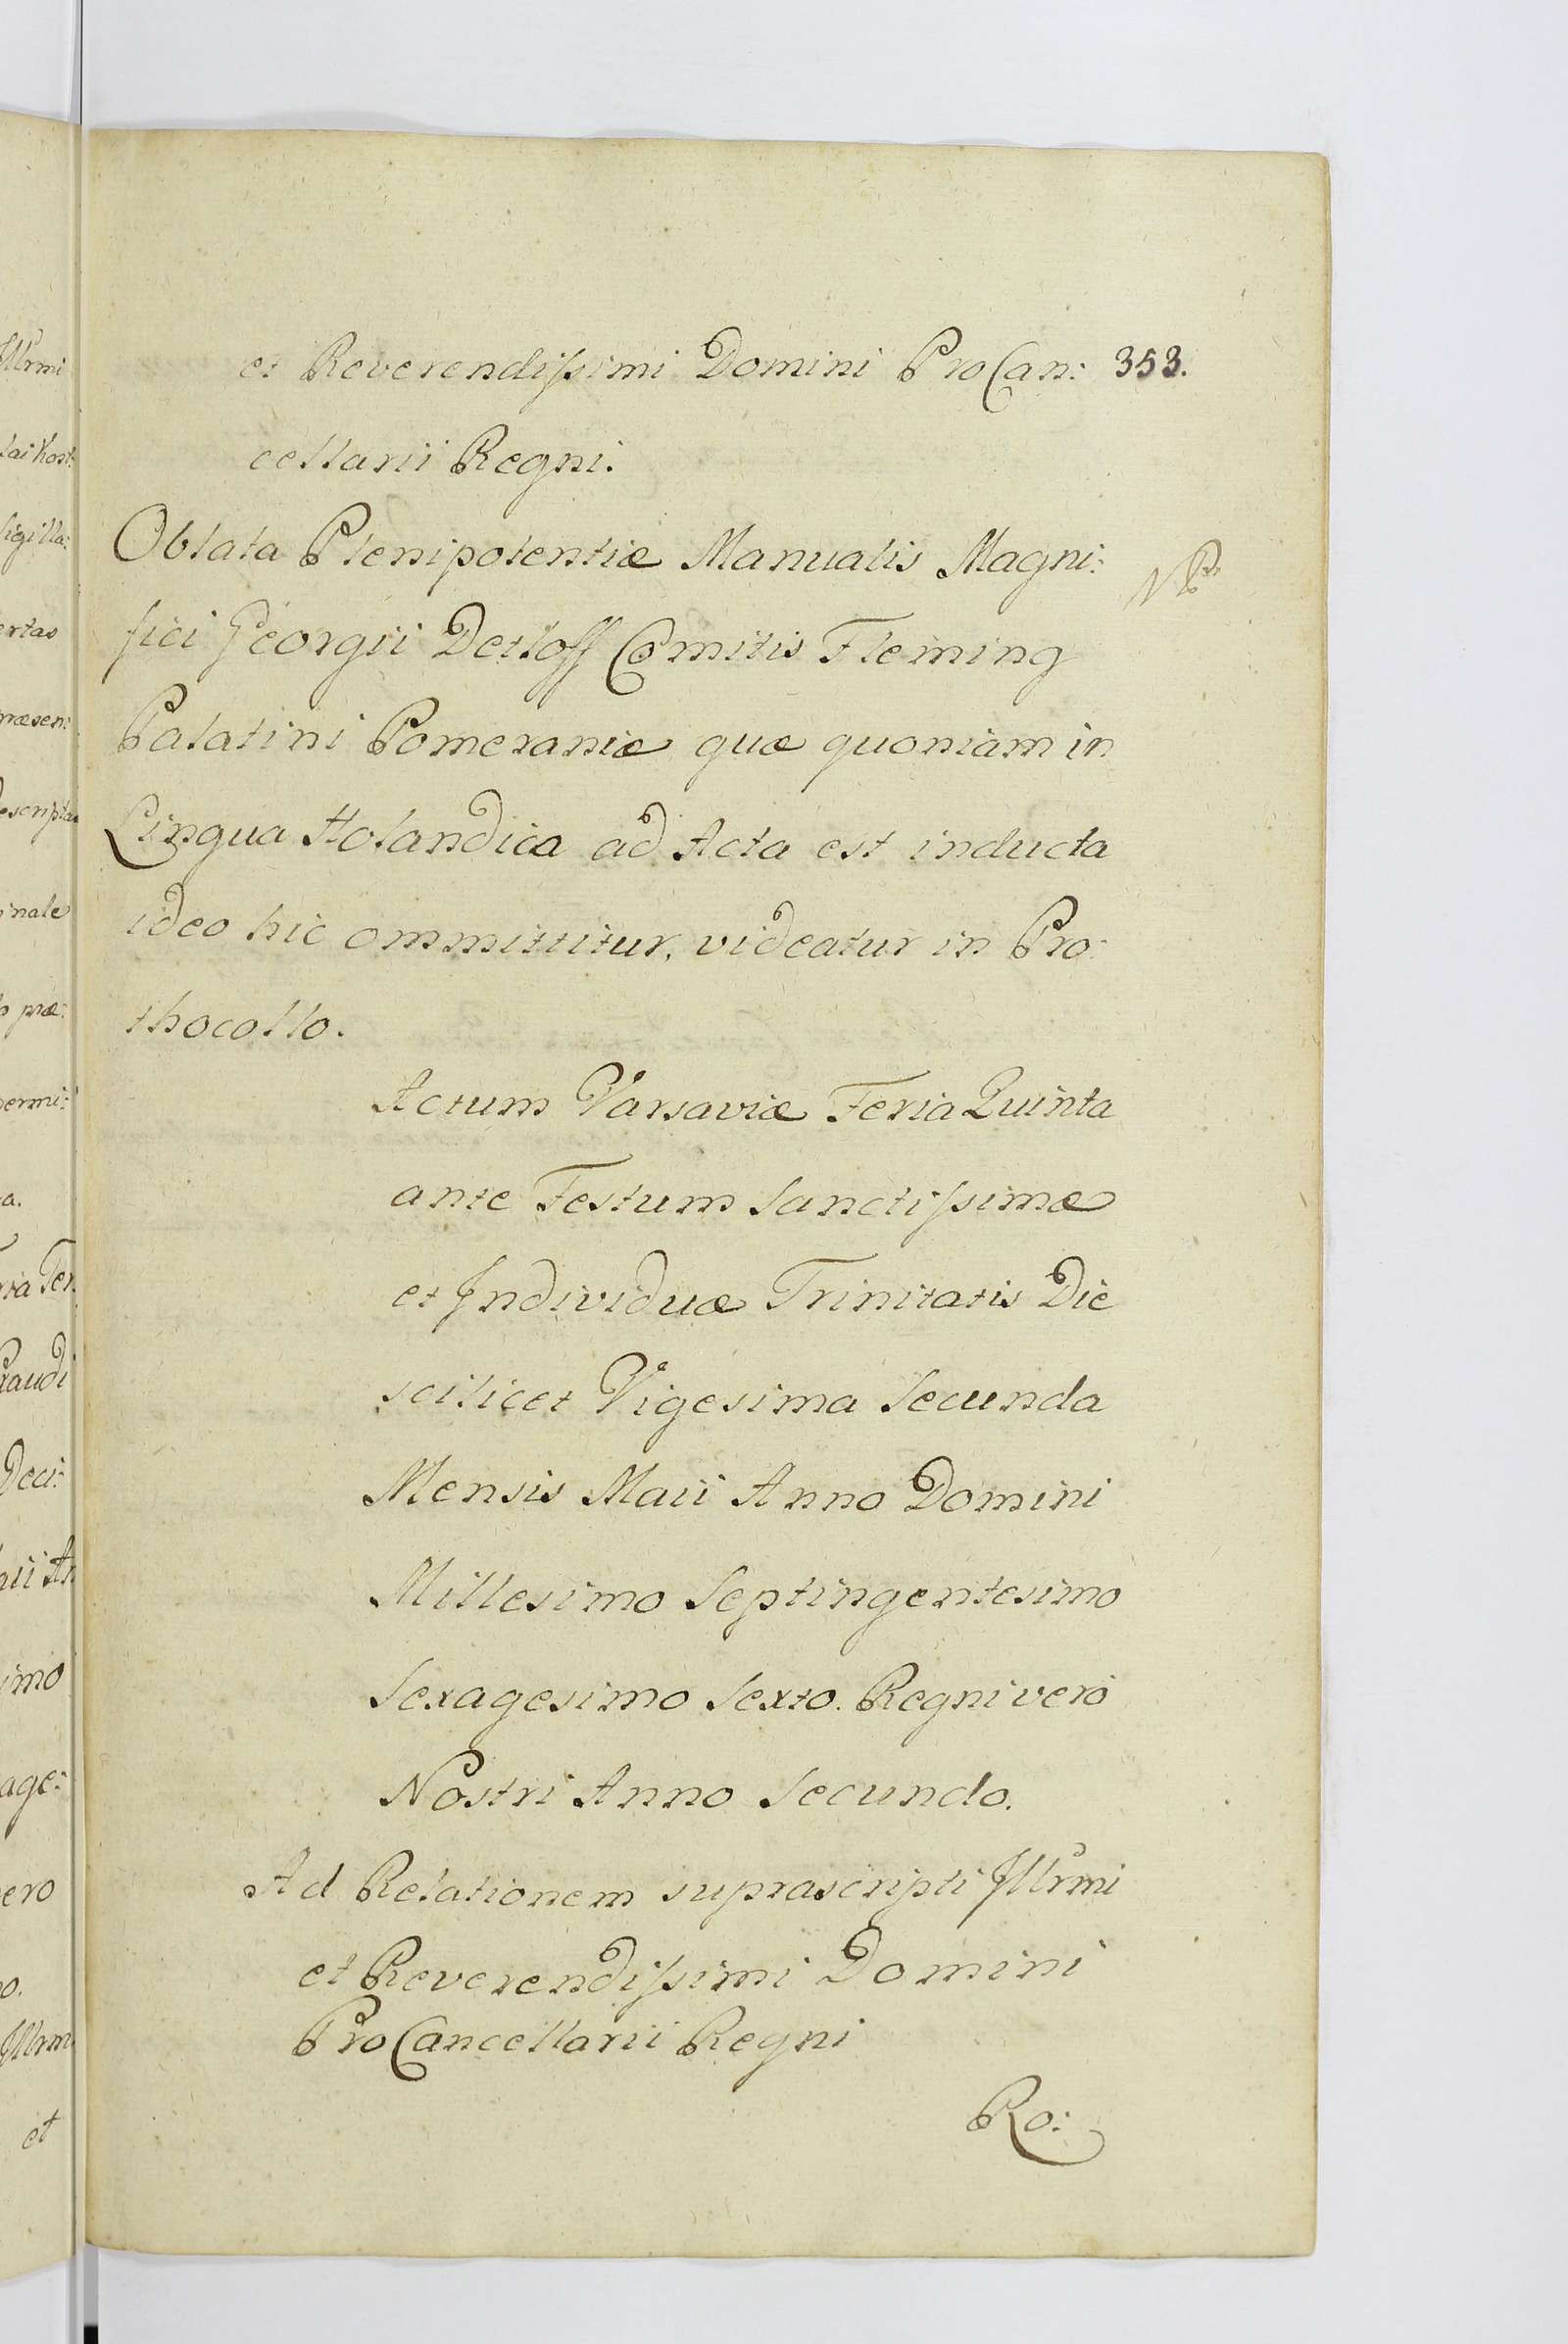 et Reverendissimi Domini ProCan: 353.
cellarii Regni.
Oblata Plenipotentiæ Manualis Magni:
fici Georgii Detloff Comitis Fleming
Palatini Pomeraniæ quæ quoniam in
Lingua Holandica ad Acta est inducta
ideo hic ommittitur, videatur in Pro:
thocollo.
Actum Varsaviæ Feria Quinta
ante Festum Sanctissimæ
et Individuæ Trinitatis Die
scilicet Vigesima Secunda
Mensis Maii Anno Domini
Millesimo Septingentesimo
Sexagesimo Sexto. Regni vero
Nostri Anno Secundo.
Ad Relationem suprascripti Illrmi
et Reverendissimi Domini
ProCancellarii Regni
Ro: